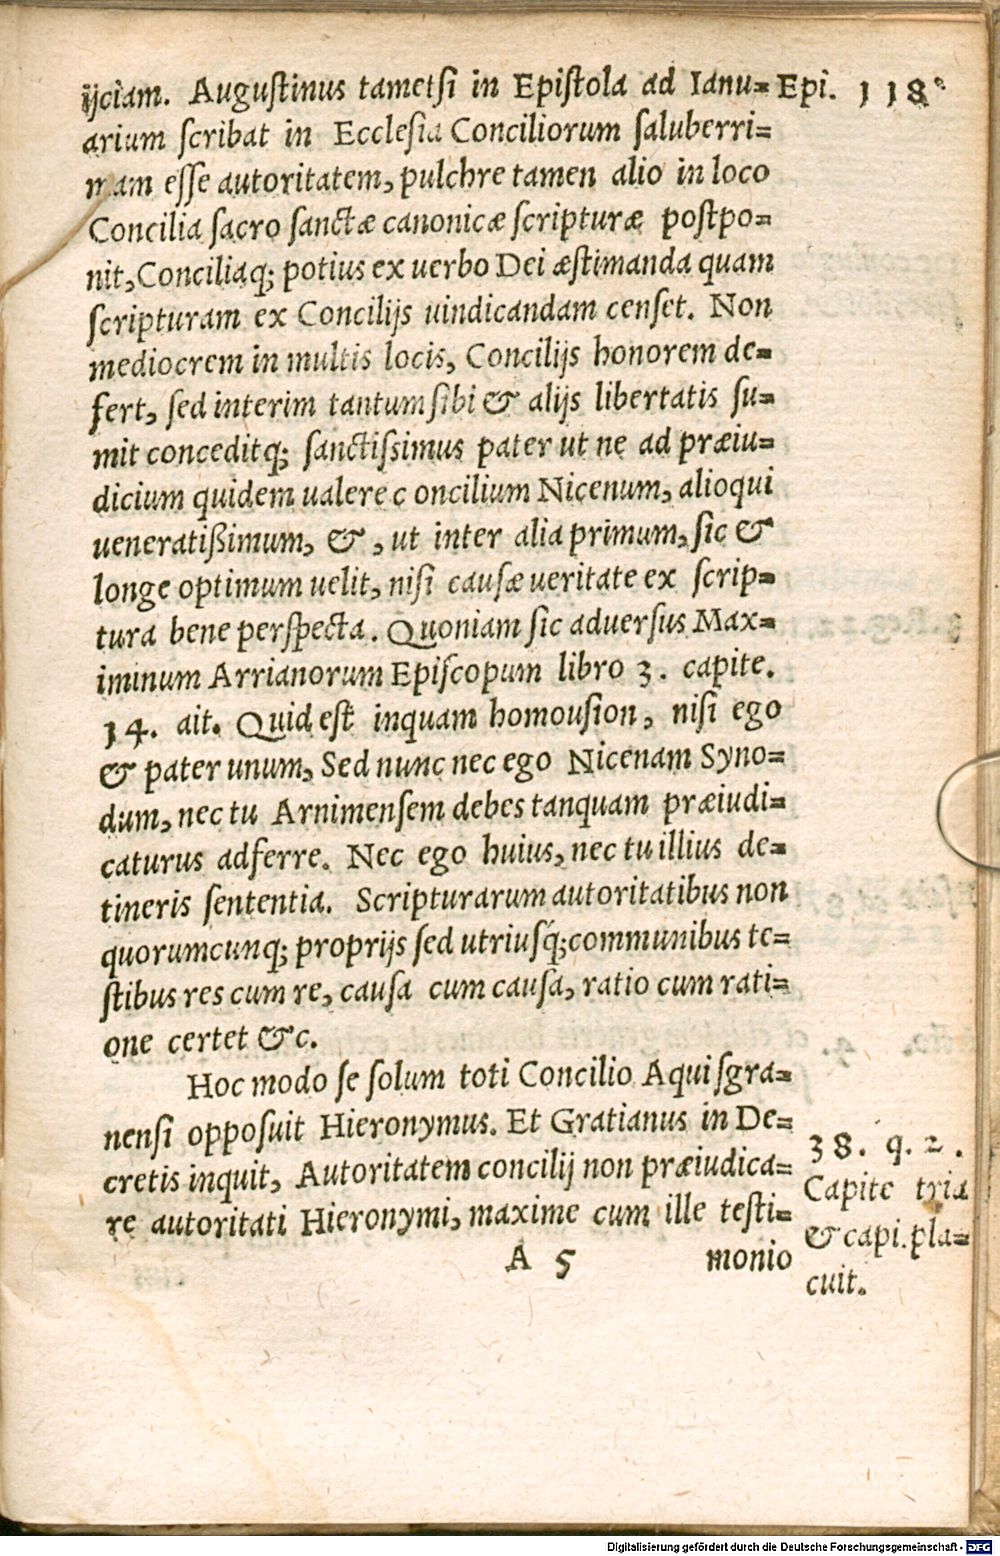 ijciam. Auguſtinus tametſi in Epiſtola ad Ianu= Epi. 118.
arium ſcribat in Eccleſia Conciliorum ſaluberri=
mam eſſe autoritatem, pulchre tamen alio in loco
Concilia ſacro ſanctæ canonicæ ſcripturæ poſtpo=
nit, Conciliaq; potius ex uerbo Dei æſtimanda quam
ſcripturam ex Concilijs uindicandam cenſet. Non
mediocrem in multis locis, Concilijs honorem de=
fert, ſed interim tantum ſibi & alijs libertatis ſu=
mit conceditq; ſanctiſsimus pater ut ne ad præiu=
dicium quidem ualere c oncilium Nicenum, alioqui
ueneratißimum, &, ut inter alia primum, ſic &
longe optimum uelit, niſi cauſæ ueritate ex ſcrip=
tura bene perſpecta. Quoniam ſic aduerſus Max=
iminum Arrianorum Epiſcopum libro 3. capite.
14. ait. Quid eſt inquam homouſion, niſi ego
& pater unum, Sed nunc nec ego Nicenam Syno=
dum, nec tu Arnimenſem debes tanquam præiudi=
caturus adferre. Nec ego huius, nec tu illius de=
tineris ſententia. Scripturarum autoritatibus non
quorumcunq; proprijs ſed utriuſq́; communibus te=
ſtibus res cum re, cauſa cum cauſa, ratio cum rati=
one certet &c.
Hoc modo ſe ſolum toti Concilio Aquiſgra=
nenſi oppoſuit Hieronymus. Et Gratianus in De=
cretis inquit, Autoritatem concilij non præiudica=
re autoritati Hieronymi, maxime cum ille teſti=
A 5 monio
38. q. 2.
Capite tria
& capi. pla=
cuit.
Digitalisierung gefördert durch die Deutsche Forschungsgemeinschaft - DFG